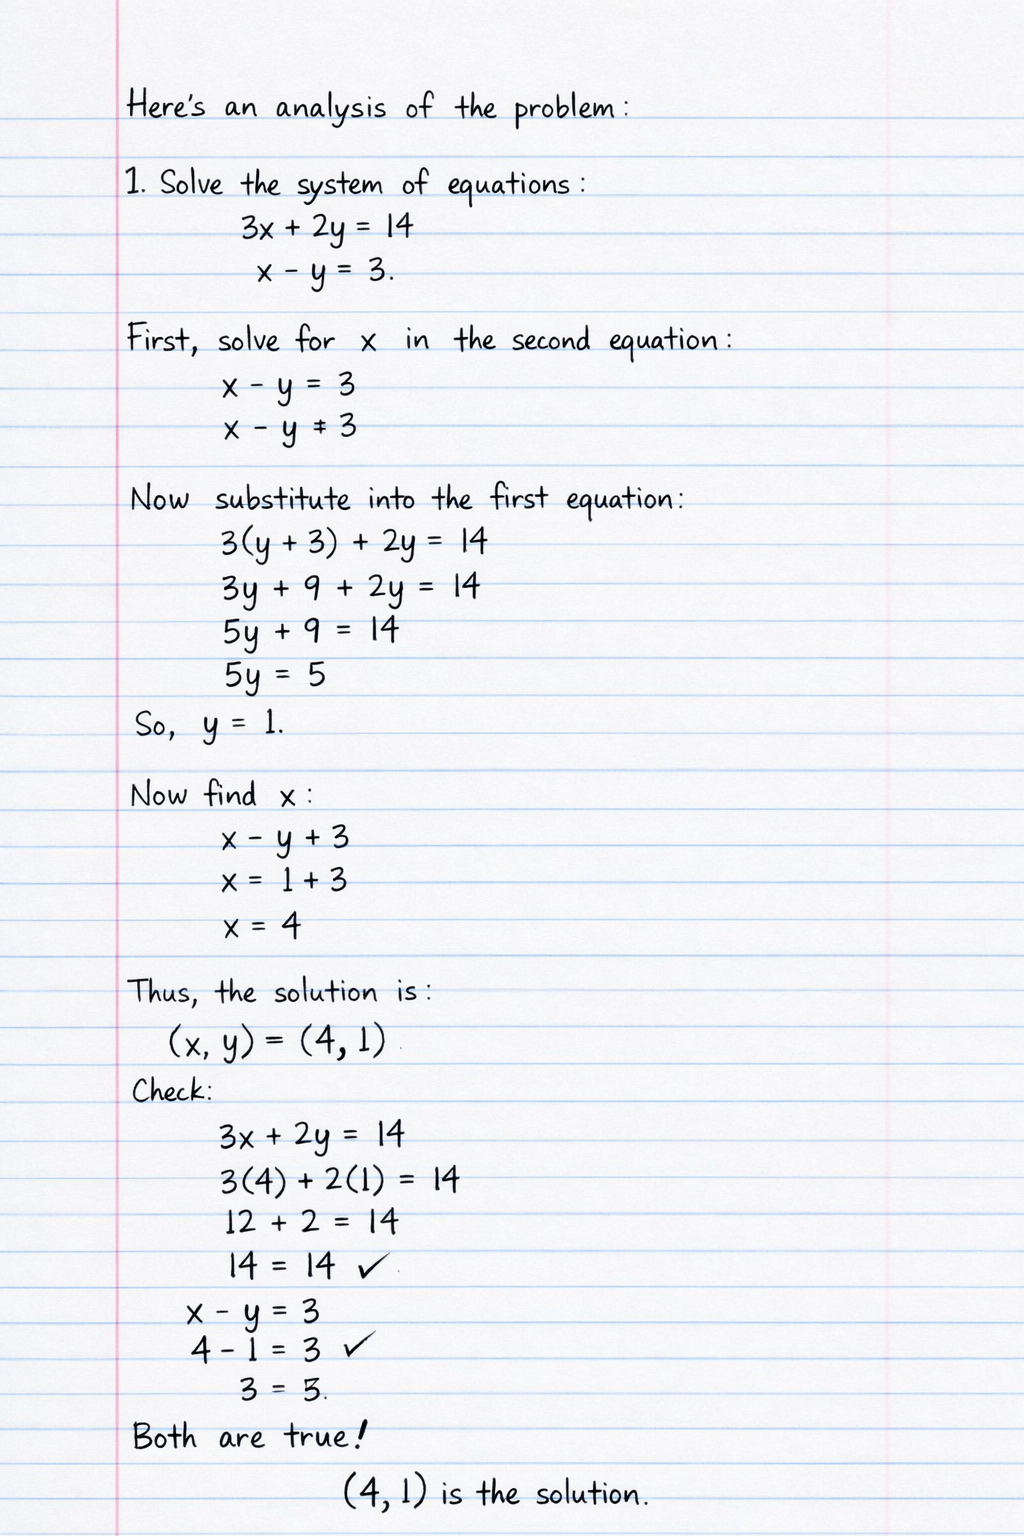 Here's an analysis of the problem:
1. Solve the system of equations:
3x + 2y = 14
x - y = 3.
First, solve for x in the second equation:
x - y = 3
x - y ‡ 3
Now substitute into the first equation:
3(y + 3) + 2y = 14
3y + 9 + 2y = 14
5y + 9 = 14
5y = 5
So, y = 1.
Now find x:
x - y + 3
x = 1 + 3
x = 4
Thus, the solution is:
(x, y) = (4, 1)
Check:
3x + 2y = 14
3(4) + 2(1) = 14
12 + 2 = 14
14 = 14 ✓
x - y = 3
4 - 1 = 3 ✓
3 = 5.
Both are true!
(4, 1) is the solution.